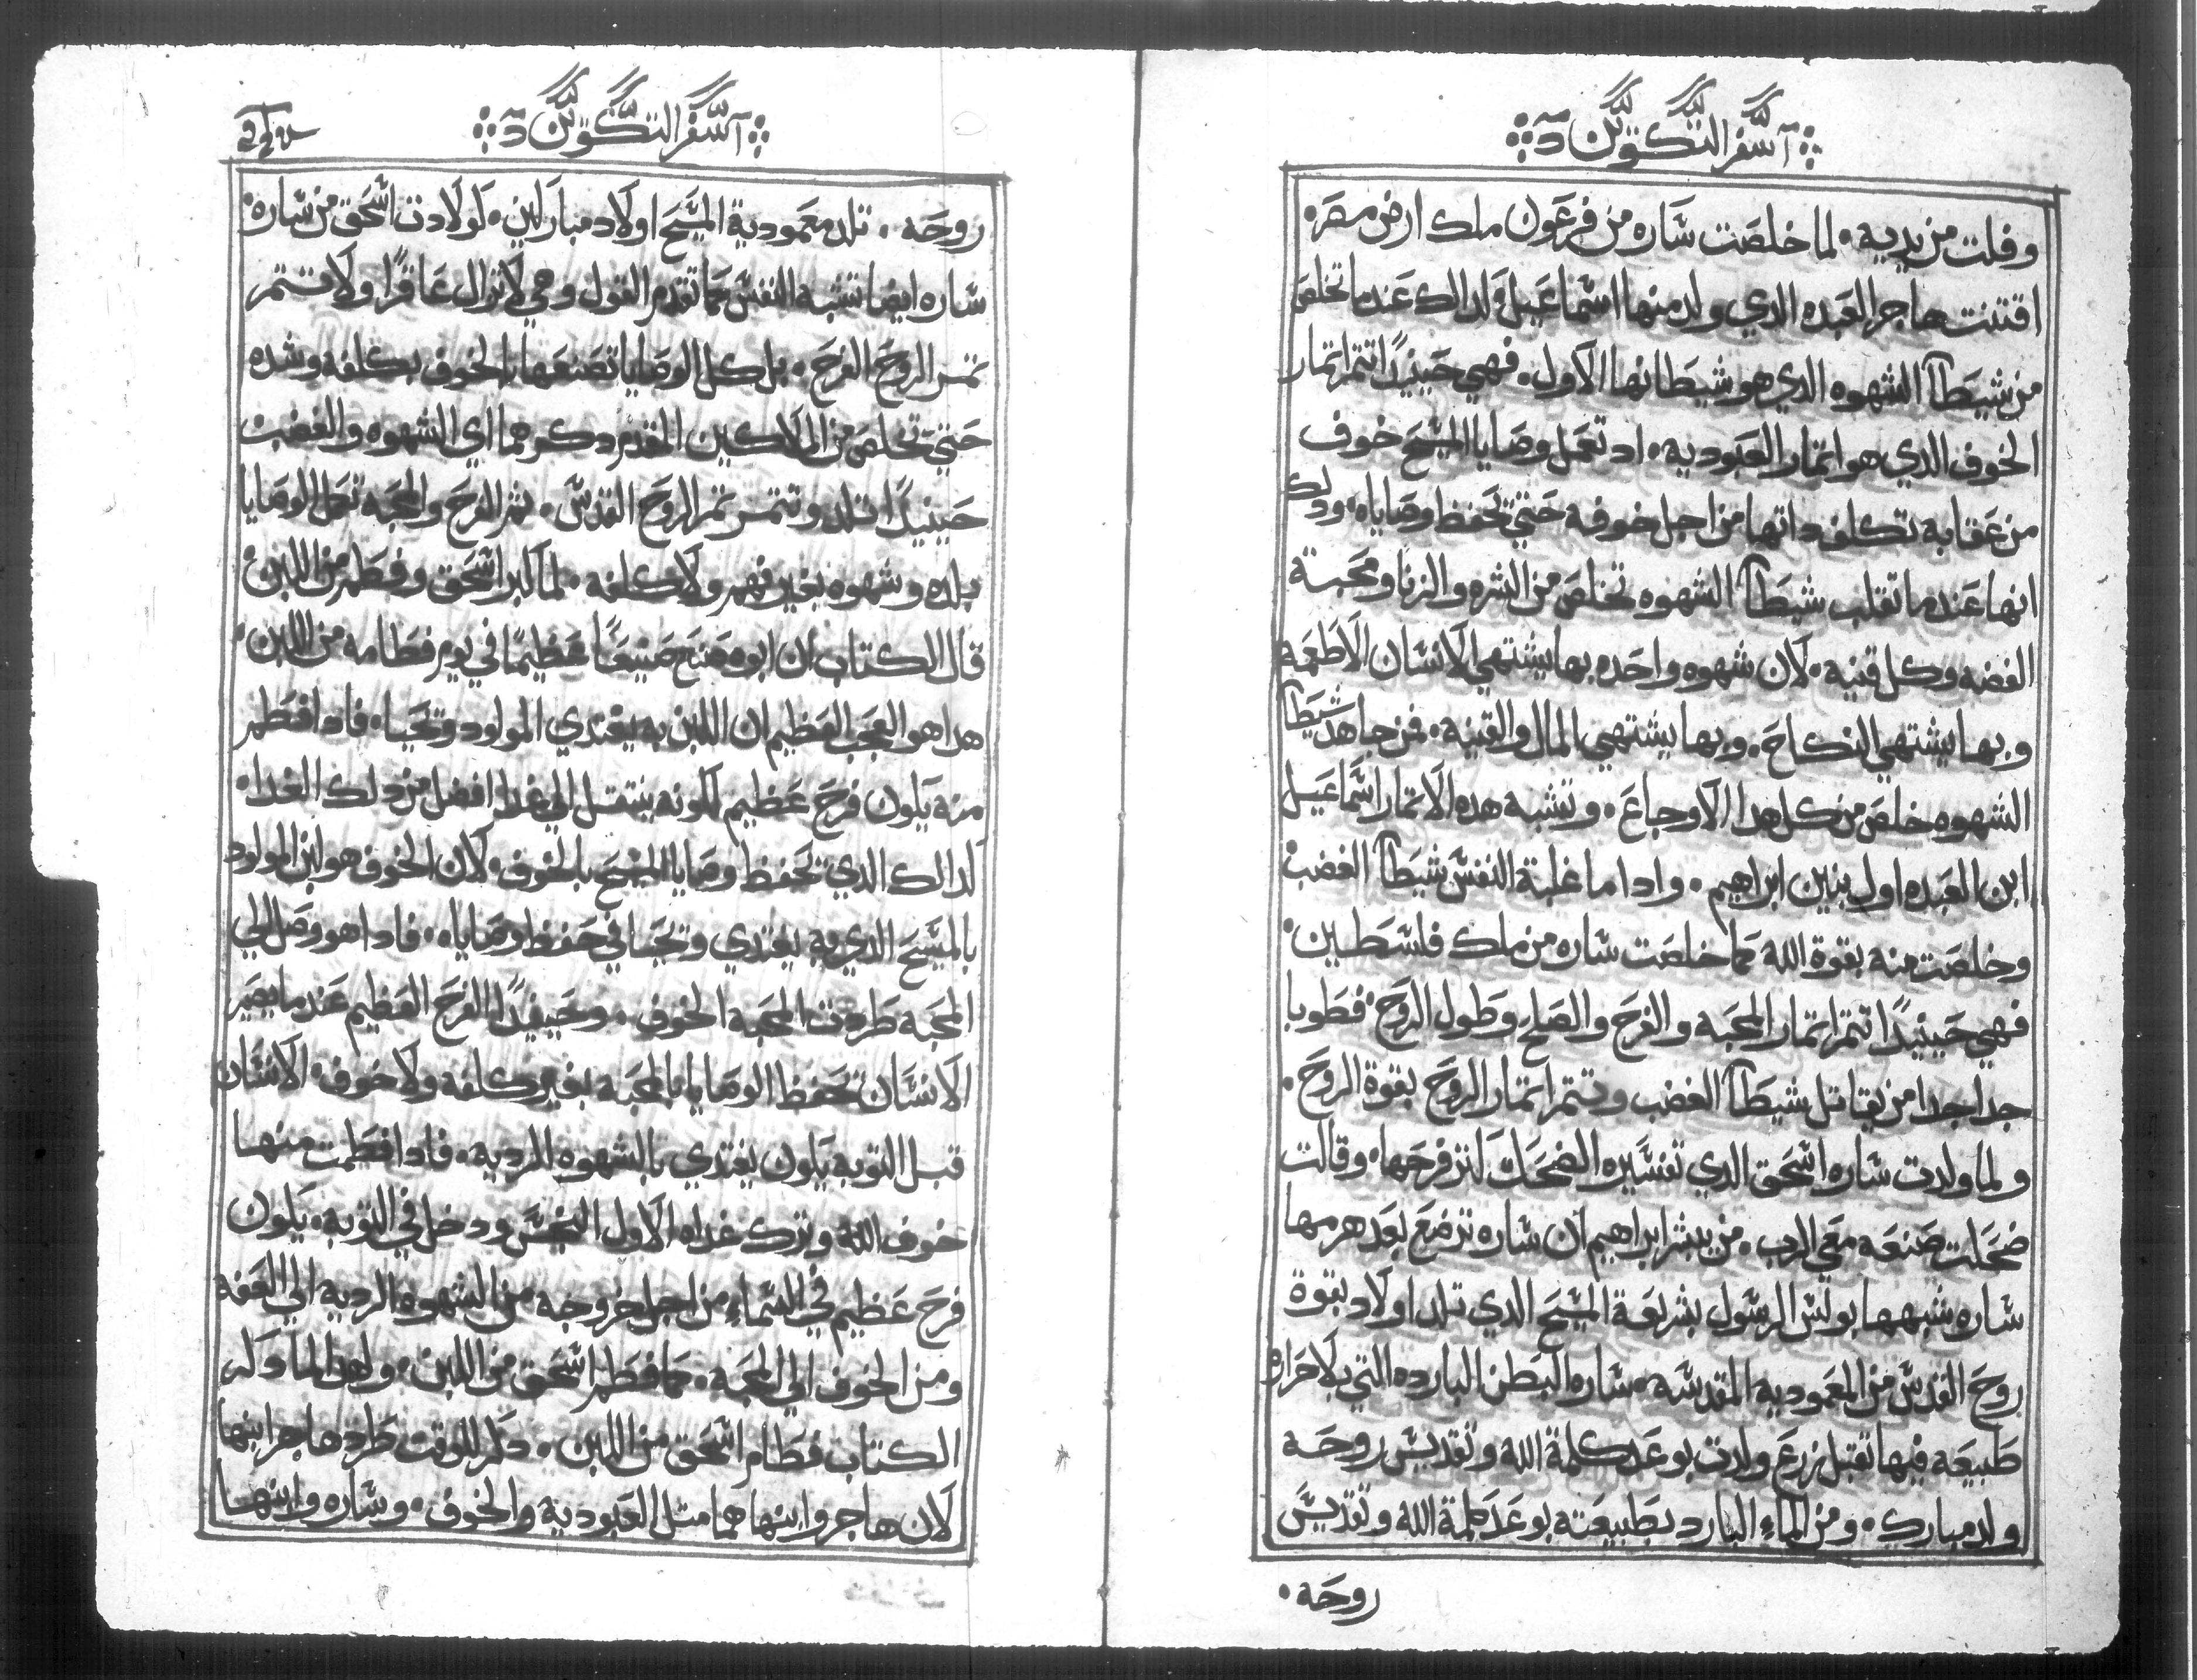 اسفر التكوين
وفلت من يديه ٠ لما خلصت ساره من فرعون ملك ارض مصره
اقتنت هاجر العبده الدي ولد منها اسماعيل ولدالك عندما تخلص
من شيطان الشهوه الدي هو شيطانها الاول ٠ فهي حينيدًا تتمر اتمار
الخوف الدي هو اتمار العبوديه ٠ اد تعمل وصايا المسيح خوف
من عقابه تكلف داتها من اجل خوفه حتي تحفظ وصاياه ٠ ودلك
انها عندما تقلب شيطان الشهوه تخلص من الشره والزنا ومحبة
الفضه وكل قنيه ٠ لان شهوه واحده بها يشتهي الانسان الاطعمه
وبها يشتهي النكاح ٠ وبها يشتهي المال والقنيه ٠ فمن جاهد شيطان
الشهوه خلص من كل هدا الاوجاع ٠ وتشبه هده الاتمار اسماعيل
ابن العبده اول بنين ابراهيم ٠ وادا ما غلبة النفس شيطان الغضب
وخلصت منه بقوة الله كما خلصت ساره من ملك فلسطين ٠
فهي حينيدًا تتمر اتمار المحبه والفرح والصلح وطول الروح ٠ فطوبا
جدا جدا من يقاتل شيطان الغضب وتتمر اتمار الروح بقوة الروح ٠
ولما ولدت ساره اسحق الدي تفسيره الضحك لتر فرحها ٠ وقالت
ضحكت صنعه معي الرب ٠ من يبشر ابراهيم ان ساره ترضع بعد هرمها
ساره شبهها بولس الرسول بشريعة المسيح الدي تلد اولاد بقوة
روح القدس من المعموديه المقدسه ٠ ساره البطن البارده التي بلا حراره
طبيعه فيها تقبل زرع ولدت بوعد كلمة الله وتقديس روحه
ولد مبارك ٠ ومن الماء البارد بطبيعته بوعد كلمة الله وتقديس
روحه ٠
اسفر التكوين
روحه ٠ تلد معمودية المسيح اولاد مباركين ٠ كولادت اسحق من ساره ٠
ساره ايضا تشبه النفس كما تقدم القول وهي لا تزال عاقرًا ولا تتمر
تمر الروح الفرح ٠ بل كل الوصايا تصنعها بالخوف بكلفه وشده
حتي تخلص من الملاكين المقدم دكرهما اي الشهوه والغضب
حينيدًا تلد وتتمر تمر الروح القدس ٠ تمر الفرح والمحبه تعمل الوصايا
بلده وشهوه بغير قهر ولا كلفه ٠ لما كبر اسحق وفطم من اللبن ٠
قال الكتاب ان ابوه صنع صنيعًا عظيمًا في يوم فطامه من اللبن ٠
هدا هو العجب العظيم ان اللبن به يغتدي المولود وتحيا ٠ فادا فطم
منه يكون فرح عظيم لكونه ينتقل الي غدا افضل من دلك الغدا ٠
لدالك الدي تحفظ وصايا المسيح بالخوف ٠ لان الخوف هو لبن المولود
بالمسيح الدي به يغتدي وتحيا في حفظ وصاياه ٠ فادا هو وصل الي
المحبه طردت المحبه الخوف ٠ وحينيدًا الفرح العظيم عندما يصير
الانسان تحفظ الوصايا بالمحبه بغير كلفه ولا خوف ٠ الانسان
قبل التوبه يكون يغتدي بالشهوه الرديه ٠ فادا فطمت منها
خوف الله وترك غداه الاول النجس ودخل في التوبه ٠ يكون
فرح عظيم في السماء من اجل خروجه من الشهوه الرديه الي العفه
ومن الخوف الي المحبه ٠ كما فطم اسحق من اللبن ٠ ولهدا لما دكر
الكتاب فطام اسحق من اللبن ٠ دكر للوقت طرد هاجر ابنها
لان هاجر وابنها هما متل العبوديه والخوف ٠ وساره وابنها